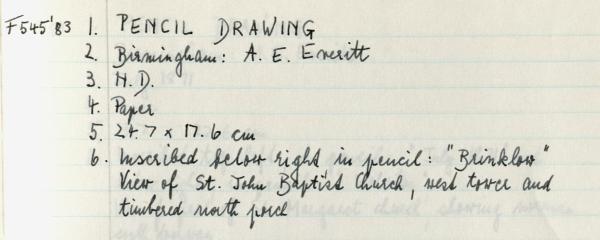 F545'83 1. PENCIL DRAWING
2. Birmingham: A. E. Everitt
3. N.D.
4. Paper
5. 24.7 x 17.6 cm
6. Inscribed below right in pencil: "Brinklow"
View of St. John Baptist Church, west tower and
timbered north porch